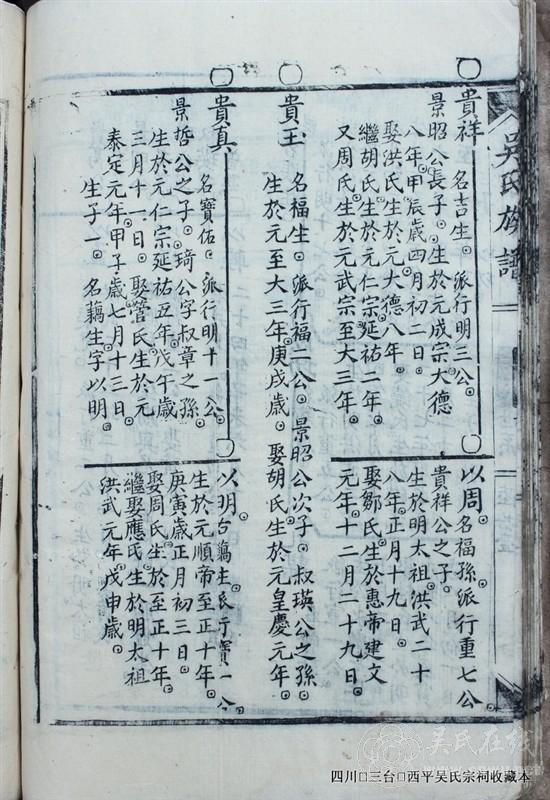 吳氏族譜
貴祥 名吉生。派行明三公。
景昭公長子。生於元成宗大德
八年。甲辰歲四月初二日。
娶洪氏生於元大德八年。
繼胡氏生於元仁宗延祐二年。
又周氏生於元武宗至大三年。
以周。名福孫派行重七公
貴祥公之子。
生於明太祖洪武二十
八年正月十九日。
娶鄒氏生於惠帝建文
元年十二月二十九日。
貴玉 名福生。派行福二公。景昭公次子。叔瑛公之孫。
生於元至大三年。庚戌歲。娶胡氏生於元皇慶元年。
貴真 名寶佑。派行明十一公。
景哲公之子。琦公字叔章之孫。
生於元仁宗延祐五年。戊午歲
三月十一日。娶管氏生於元
泰定元年。甲子歲七月十三日。
生子一。名藕生字以明。
以明名藕生派行寶一公。
生於元順帝至正十年。
庚寅歲正月初三日。
娶周氏生於至正十年。
繼娶應氏生於明太祖
洪武元年。戊申歲。
吴氏在线
四川□三台□西平吴氏宗祠收藏本